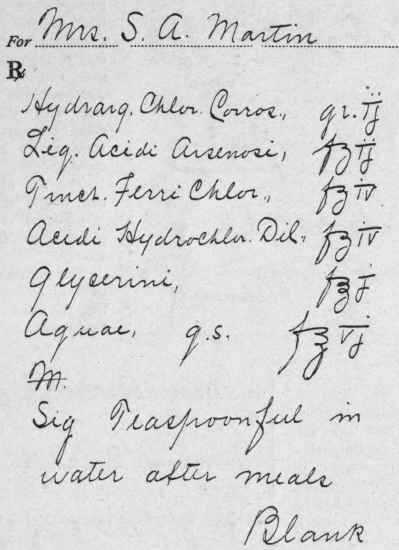 For Mrs. S. A. Martin
℞
Hydrarg. Chlor. Corros., gr. ij
Liq. Acidi Arsenosi, fʒ ij
Tinct. Ferri Chlor., fʒ iv
Acidi Hydrochlor. Dil., fʒ iv
Glycerini, f℥ j
Aquae, q.s. f℥ vj
M.
Sig Teaspoonful in
water after meals
Blank